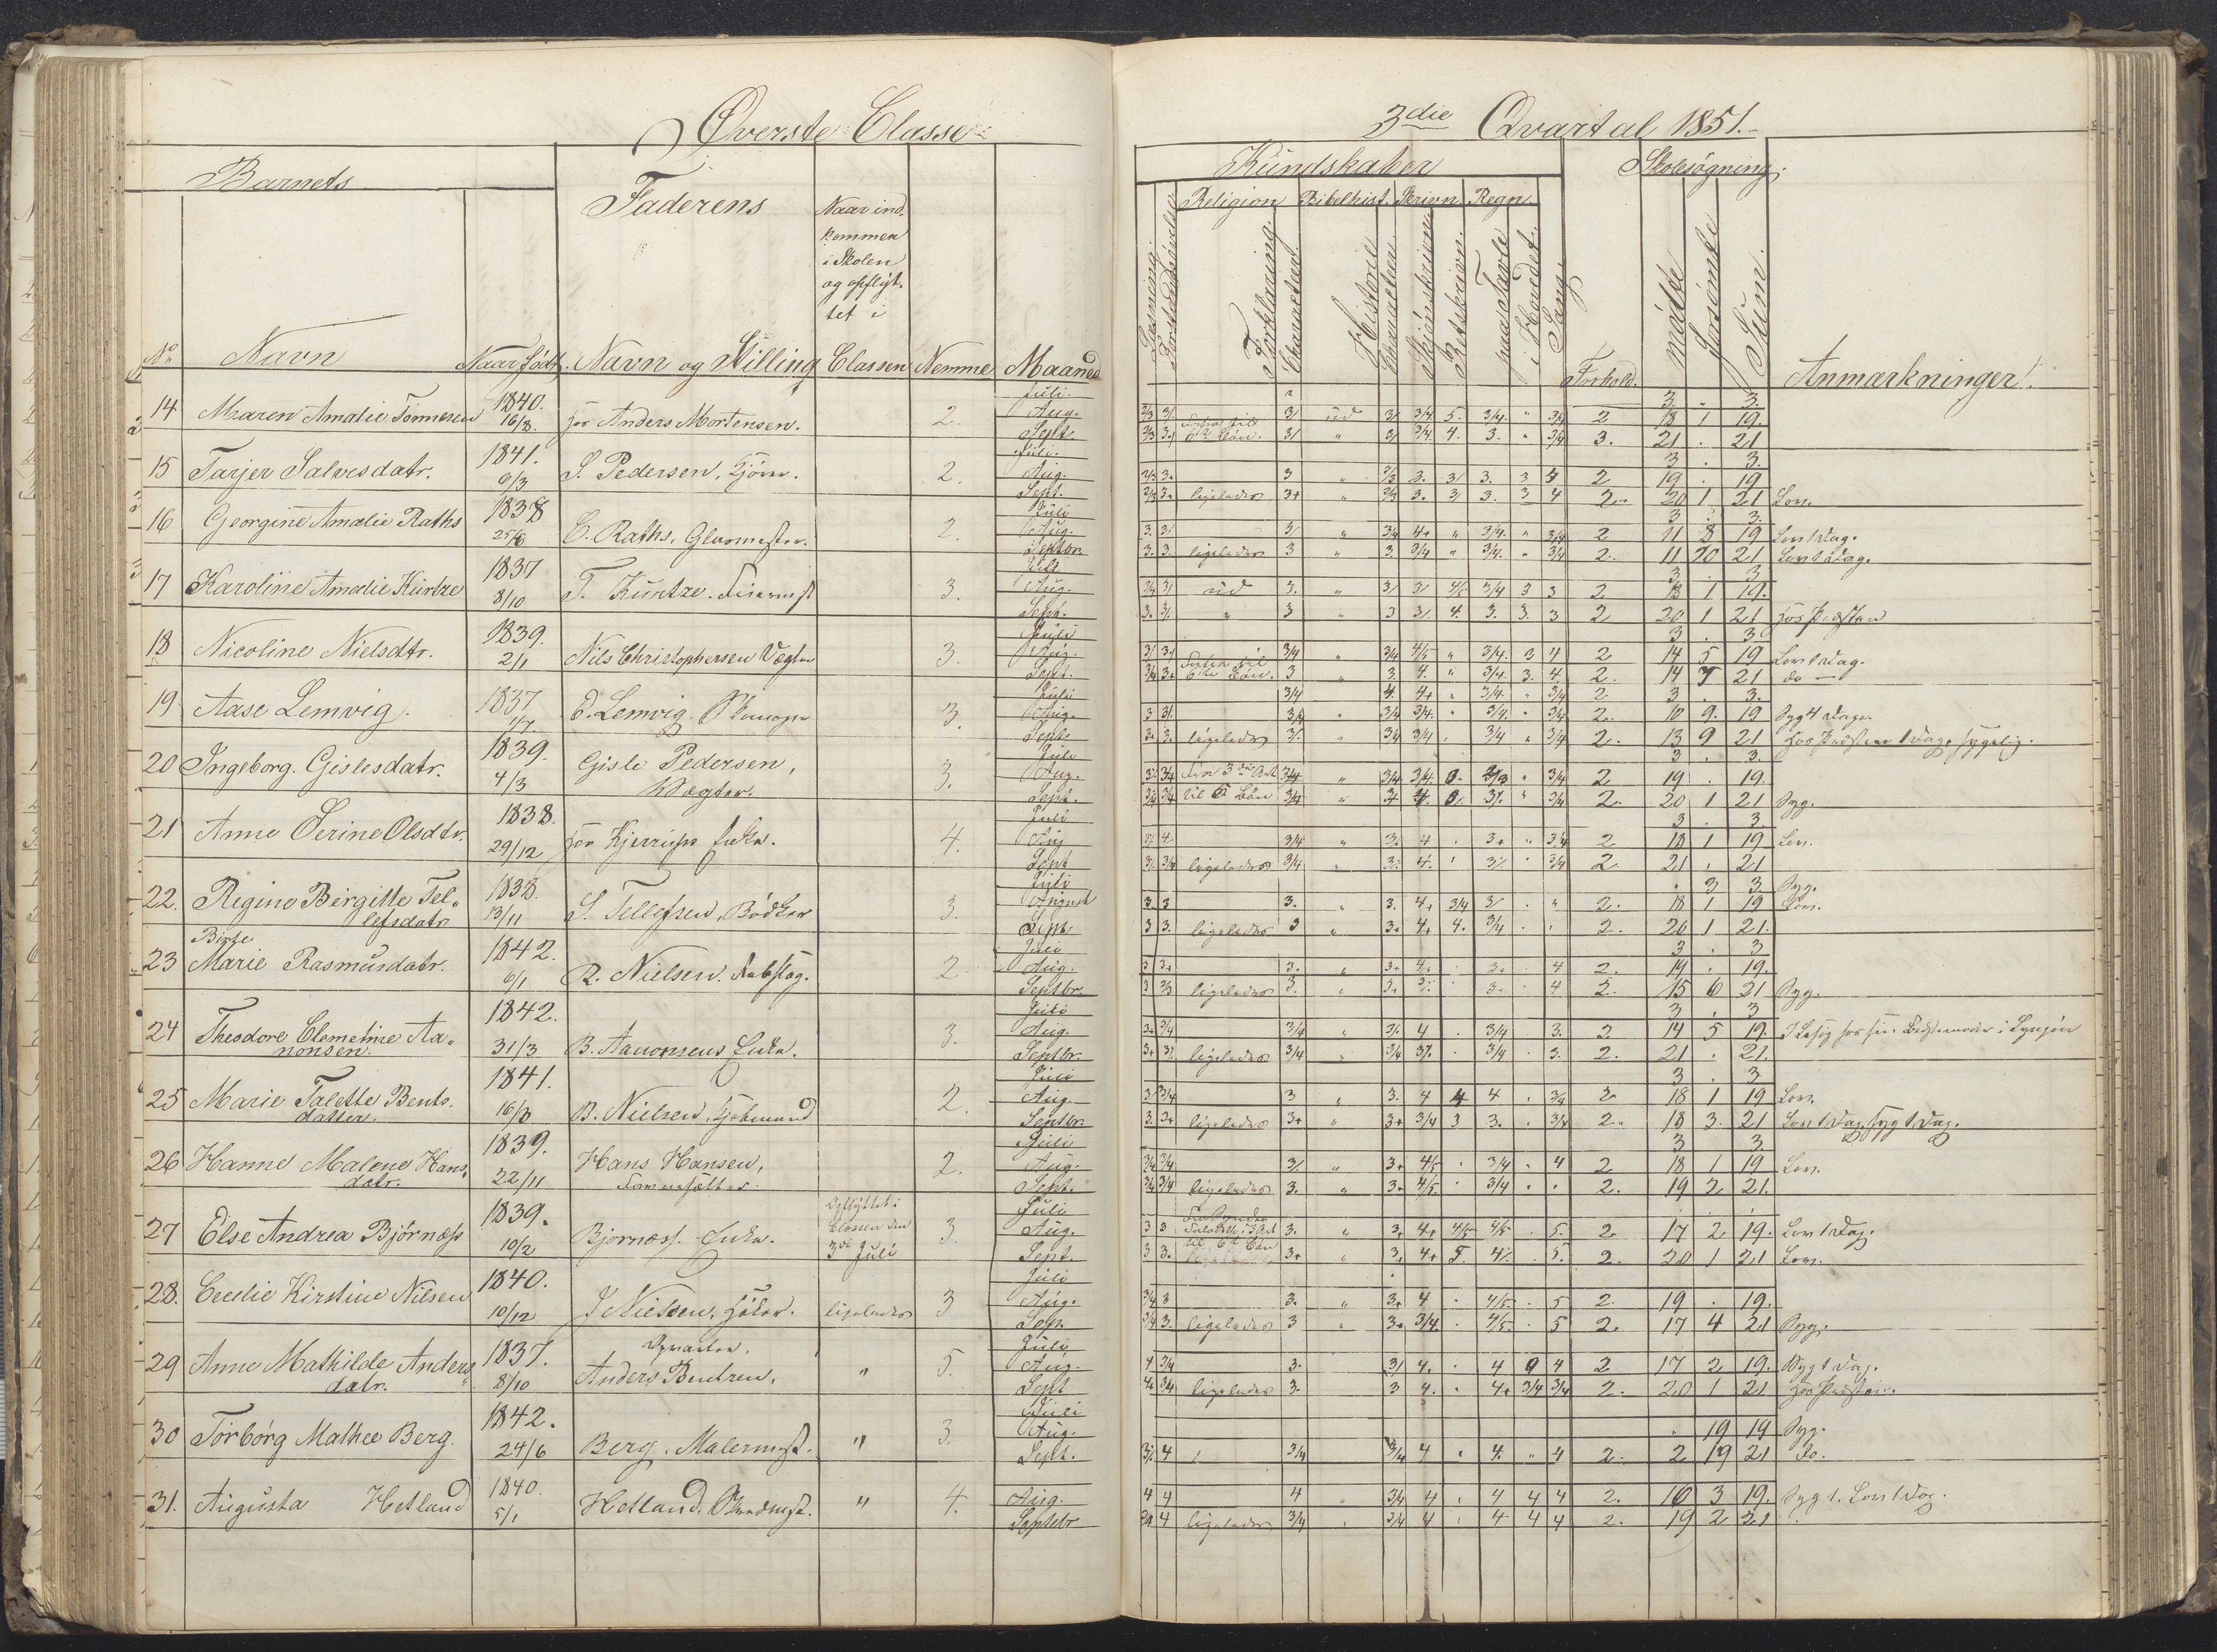 Øverste Classe
Barnets
Faderens
Naar ind-
kommen
i Skolen
og opflyt-
tet i
No Navn Naar født. Navn og Stilling Classen Nemme Maaned
14 Maaren Amalie Tønnesen 1840. 16/8. hos Anders Mortensen. 2. Juli. Aug. Sept.
15 Tarjer Salvesdatr. 1841. 9/3 S. Pedersen, 2. Juli. Aug. Sept.
16 Georgine Amalie Raths 1838 25/8 C. Raths, Glarmester. 2. Juli Aug. Septbr.
17 Karoline Amalie Kürtze 1837 8/10 T. Kürtze. 3. Juli Aug. Sept.
18 Nicoline Nielsdtr. 1839. 2/1 Nils Christophersen Vægter 3. Juli Aug. Sept.
19 Aase Lemvig. 1837 1/7. E. Lemvig. 3. Juli Aug. Sept.
20 Ingeborg. Gislesdatr. 1839. 4/3 Gisle Pedersen, Vægter. 3. Juli Aug. Sept.
21 Anne Serine Olsdtr. 1838. 29/12 hos Enke. 4. Juli Aug Sept
22. Regine Birgitte Tel-
lefsdatr 1838. 13/11 S. Tellefsen, Bødker 3. Juli August Sept.
Birte
23 Marie Rasmusdatr. 1842. 6/1 R. Nielsen. Rebslag. 2. Juli Aug. Septbr.
24 Theodore Clementine Aa-
nonsen. 1842. 31/3 B. Aanonsens Enke. 3. Juli Aug. Septbr.
25 Marie Talette Bents-
datter. 1841. 16/8 B. Nielsen, 2. Juli Aug. Septbr.
26 Hanne Malene Hans-
datr. 1839. 22/11 Hans Hansen, 2. Juli Aug. Sept.
27 Else Andrea Bjørnæss 1839. 10/2 Bjørnæss. Enke. Opflyttet i Classen den 3die Juli 3. Juli Aug. Sept
28. Cecilie Kirstine Nilsen 1840. 10/12 J Nielsen, ligeledes 3 Juli Aug. Sep.
29 Anne Mathilde Anders-
datr. 1837. 8/10 Anders Bentzen, " 5. Juli Aug. Sept
30 Torborg Mathee Berg. 1842. 24/6 Berg. Malermest. " 3. Juli Aug. Sept.
31. Augusta Hetland 1840. 5/1 Hetland. " 4. Aug. Septebr
3die Qvartal 1851.
Kundskaber Skolesøgning.
Religion Bibelhist. Skrivn. Regn.
Læsning.
Forklaring.
Characteer
Historie
Characteer.
Skjønskrivn
Retskrivn.
paa Tavle
i Hovedet.
Sang
Forhold.
mødte
forsømte
Sum.
Anmærkninger.
3. " 3.
2/3 3/. 3/ ud 3/ 3/4 5. 3/4. " 3/4 2 18 1 19.
2/3 3. 6te Bøn. 3/ " 3/ 3/4 4. 3. " 3/4 3. 21 . 21
3 . 3.
2/3 3. 3 2/3 3. 3/ 3. 3 4 2 19 . 19
2/3 3. ligeledes 3+ " 2/3 3. 3/ 3. 3 4 2. 20 1 21 Lov.
3 . 3.
3. 3/ 3/ " 3/4 4+ " 3/4. " 3/4 2 11 8 19 Lov 1 Dag.
3. 3. ligeledes 3 " 3. 3/4 " 3/4. " 3/4 2. 11 10 21 Lov 1 Dag.
3 . 3
3/4 3/ ud 3. " 3/ 3/ 4/5 3/4 3 3 2 18 1 19.
3. 3/. " 3 " 3 3/. 4. 3. 3. 3 2 20 1 21 hos Præsten
3 . 3
3/ 3/ 3/4 " 3/4 4/5 " 3/4. 3 4 2 14 5 19 Lov 1 Dag.
3/4 3+ 6te Bøn. 3 " 3. 4. " 3/4. 3. 4. 2. 14 7 21 do —
3/4 4. 4+ " 3/4. " 3/4 2. 3 . 3.
3 3/. 3/4 " 3/4 3/4. " 3/4. " 3/4 2. 10 9. 19 Syg 4 Dage.
3. 3. ligeledes 3/. " 3/4 3/4 . 3/4 " 3/4 2. 13 9 21 hos Præsten 1 Dag, sygelig.
3 . 3.
3/4 2 19 . 19.
til 6 Bøn 3/4 2. 20 1 21 Syg.
3 . 3.
3/. 4. 3/4 " 3/. 4 . 3+ " 3/4 2 18 1 19 Lov.
ligeledes 3/4 2. 21 . 21
. 3 3. Syg.
3. 3 3. " 3. 4+ 3/4 3/ . " 2. 18 1 19 Lov.
3 3. ligeledes 3 " 3+ 4+ 4. 3/4 . . 2. 20 1 21.
3 . 3
3 3+ 3. " 3+ 4. . 3. . 4 2. 19 . 19.
3 2/3 ligeledes 3. 4 2. 15 6 21 Syg.
3 . 3
3+ 3/4 3/4 " 3/. 4 . 3/4 . 3. 2 14 5 19.
3+ 3/. ligeledes 3/4 " 3/4 3/. . 3/4 . 3. 2. 21 . 21.
3 . 3
3/ 3/4 3 " 3. 4 4 4 . 3/4 2 18 1 19 Lov.
3. 3+ ligeledes 3+ " 3+ 3/4 3 3. . 3/4 2. 18 3. 21 Lov 1 Dag, syg 1 Dag.
3 3.
3/4 3/4 3/. " 3+ 4/5 . 3/4 . 4 2 18 1 19 Lov.
3/4 3/4 ligeledes 3. " 3+ 4/5 . 3/4 . . 2. 19 2 21.
3 3 3. " 3+ 4+ 4/5 4/5 . 5. 2 17 2 19. Lov 1 Dag.
3 3. til 6te Bøn 3+ " 3+ 4+ 5. 4/. . 5. 2. 20 1 21 Lov.
3/4 3 3. " 3+ 4 . 4/5. . 5 2. 19 . 19.
3/4 3. ligeledes 3 " 3+ 3/4. . 4/5. . 5 2. 17 4 21 Syg.
4 3/4 3. 3/ 4. . 4 4 2 17 2 19. Syg 1 Dag.
4. 3/4 ligeledes 3. 3 4. . 4+ 3/4 3/4 2. 20 1 21 hos Præsten.
. 19 19 Syg.
3/. 4 3/4 3/4 4 . 4. " 4 2. 2 19 21 do.
4 4 4 " 3/4 4 . 4 4 4 2. 16 3 19. Syg 1. Lov 1 Dag.
3/4 4 ligeledes 3/4 . 3/4 4 . 4 4 4 2. 19 2 21